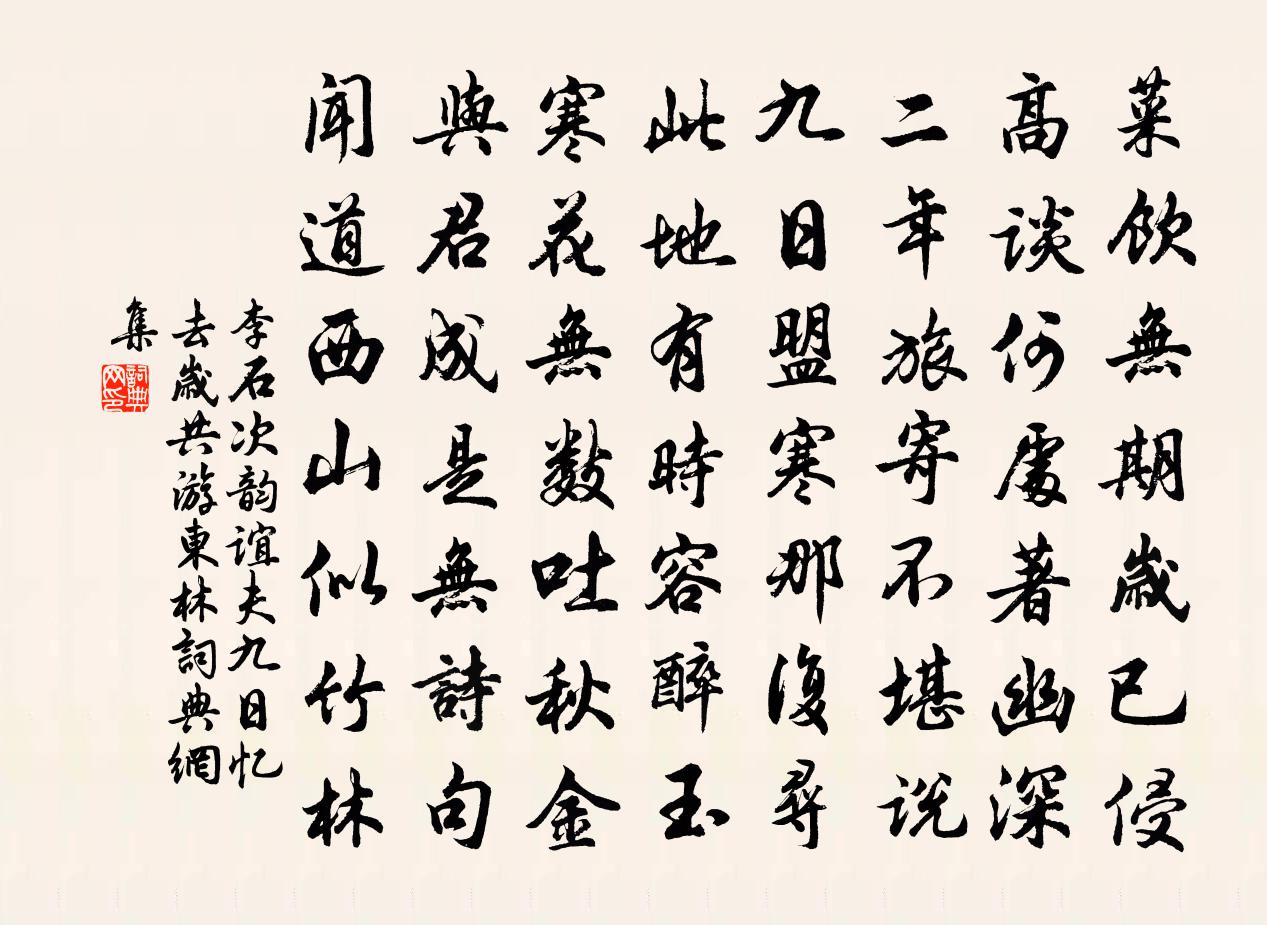 菜飲無期歲已侵
高談何處著幽深
二年旅寄不堪说
九日盟寒那復尋
此地有時容醉玉
寒花無数吐秋金
與君成是無詩句
聞道西山似竹林
李石次韵谊夫九日忆
去歲共游東林詞典網
集
詞典
网印